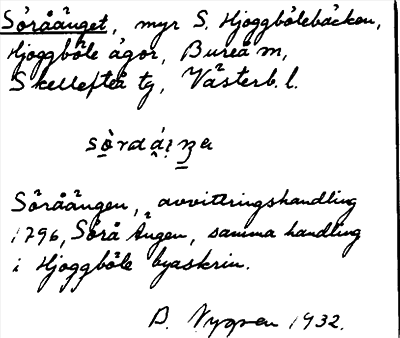 Söråänget, myr S. Hjoggbölebäcken,
Hjoggböle ägor, Bureå sn,
Skellefteå tg, Västerb. l.
Söråängen, avvittringshandling
1796, Sörå Ängen, samma handling
i Hjoggböle byaskrin.
B. Nygren 1932.